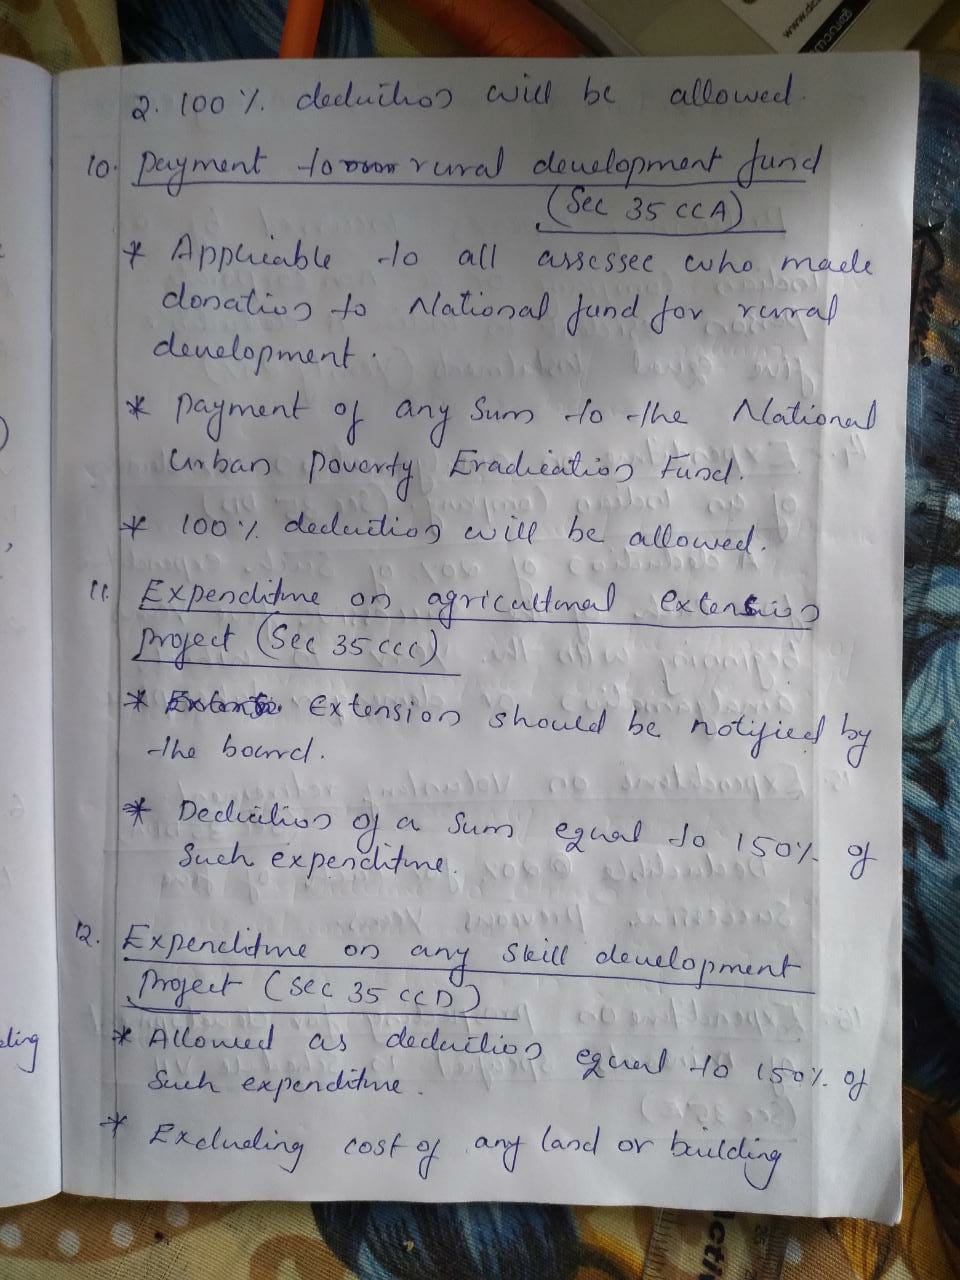 2. 100 %. deduction will be allowed.
10. Payment to rural development fund
(Sec 35 CCA)
* Applicable to all assessee who made
donation to National fund for rural
development.
* Payment of any Sum to the National
Urban Poverty Eradication Fund.
* 100 %. deduction will be allowed.
11. Expenditure on agricultural extension
Project (Sec 35 CCC)
* Extension should be notified by
the board.
* Deduction of a Sum equal to 150% of
Such expenditure.
12. Expenditure on any Skill development
Project (Sec 35 CCD)
* Allowed as deduction equal to 150%. of
Such expenditure.
* Excluding cost of any land or building